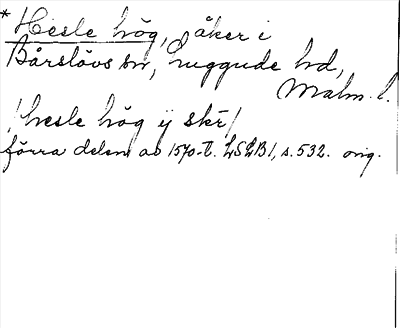 *Hesle hög, åker i
Bårslövs sn, Luggude hd,
Malm. l.
/hesle hög ij skr/
förra delen av 1570-t. LSLB1, s. 532. orig.